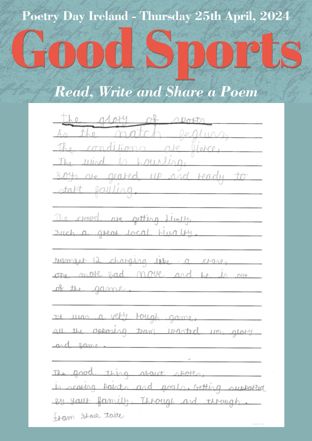 Poetry Day Ireland - Thursday 25th April, 2024
Good Sports
Read, Write and Share a Poem
The glory of sports
As the match begins,
The conditions are fierce,
The wind is howling,
are geared up and ready to
start
The crowd are getting lively,
Such a great local rivalry.
Number 12 charging like a
one more bad move and he is out
of the game.
a very tough game,
all the opposing team wanted was glory
and
The good thing about sports,
Is scoring points and goals, Getting supported
by your family. Through and through.